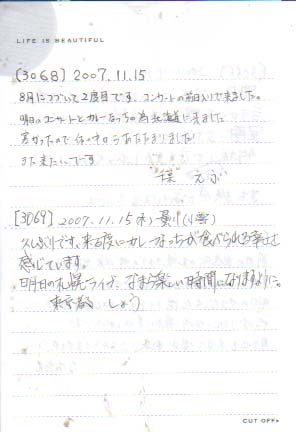 LIFE IS BEAUTIFUL
[3068] 2007.11.15
8月につづいて2度目です。コンサートの前日入りで来ました。
明日のコンサートとカレーなっちの為北海道に来ました
寒かったので体の中からあたたまりました!
また来たいです
"千葉" えぶ
[3069] 2007.11.15(木)曇り(小雪)
久しぶりです。来る度にカレーなっちが食べられる幸せを
感じています。
明日の札幌ライブ、なまら楽しい時間になりますように。
東京都 しょう
CUT OFF